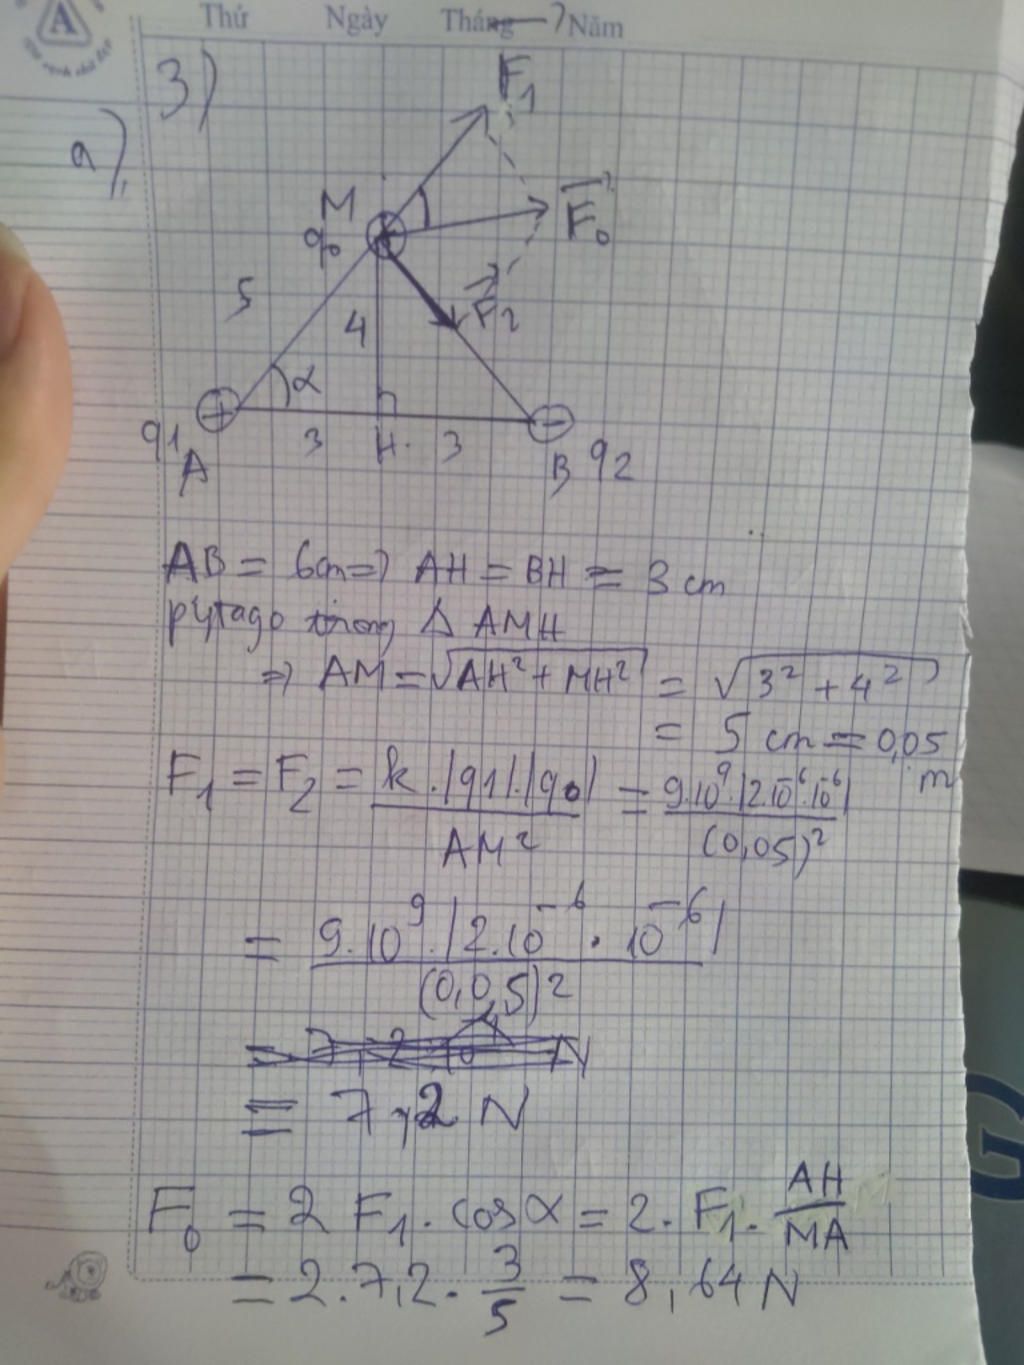 Thứ Ngày Tháng 7 Năm
A
3)
a)
F₁
M
q₀
F₀
5
4
F₂
α
q1
A
3 H 3
B q2
AB = 6cm ⇒ AH = BH = 3 cm
pytago trong Δ AMH
⇒ AM = √(AH² + MH²) = √(3² + 4²)
= 5 cm = 0,05 m
F₁ = F₂ = k.|q1|.|q₀| / AM² = 9.10⁹.|2.10⁻⁶.10⁻⁶| / (0,05)²
= 9.10⁹.|2.10⁻⁶ . 10⁻⁶| / (0,05)²
= 7,2 N
F₀ = 2 F₁. cosα = 2. F₁. AH/MA
= 2.7,2. 3/5 = 8,64 N
G